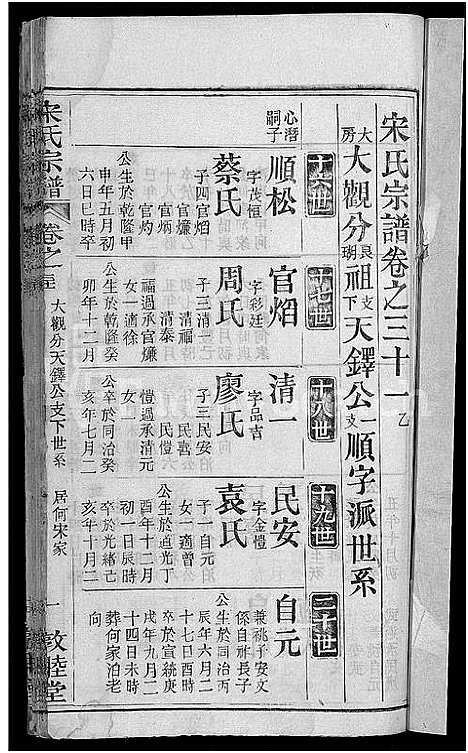 宋氏宗譜卷之三十一乙
大房大觀分良瑚祖支下天鐸公一支順字派世系
十六世
十七世
十八世
十九世
二十世
心潛嗣子
順松
字茂恒
蔡氏
子四官熖
官爀
官灼
公生於乾隆甲
申年五月初
六日巳時卒
官熖
字彩廷
周氏
子三清一
清福
清泰
福過承官爀
女一適徐
公生於乾隆癸
卯年十二月
清一
字品吉
廖氏
子三民安
民喜
民愷
愷過承清元
女一
公卒於同治癸
亥年七月二
民安
字金愷
袁氏
子一自元
女一適曾
公生於道光丁
酉年十二月
初一日辰時
卒於光緒己
亥年十月二
自元
兼祧子安文
係自祥長子
公生於同治丙
辰年六月二
十七日酉時
卒於宣統庚
戌年九月二
十四日未時
葬何家泊老
向
宋氏宗譜
卷之一
大觀分天鐸公支下世系
居何宋家
一
敦睦堂